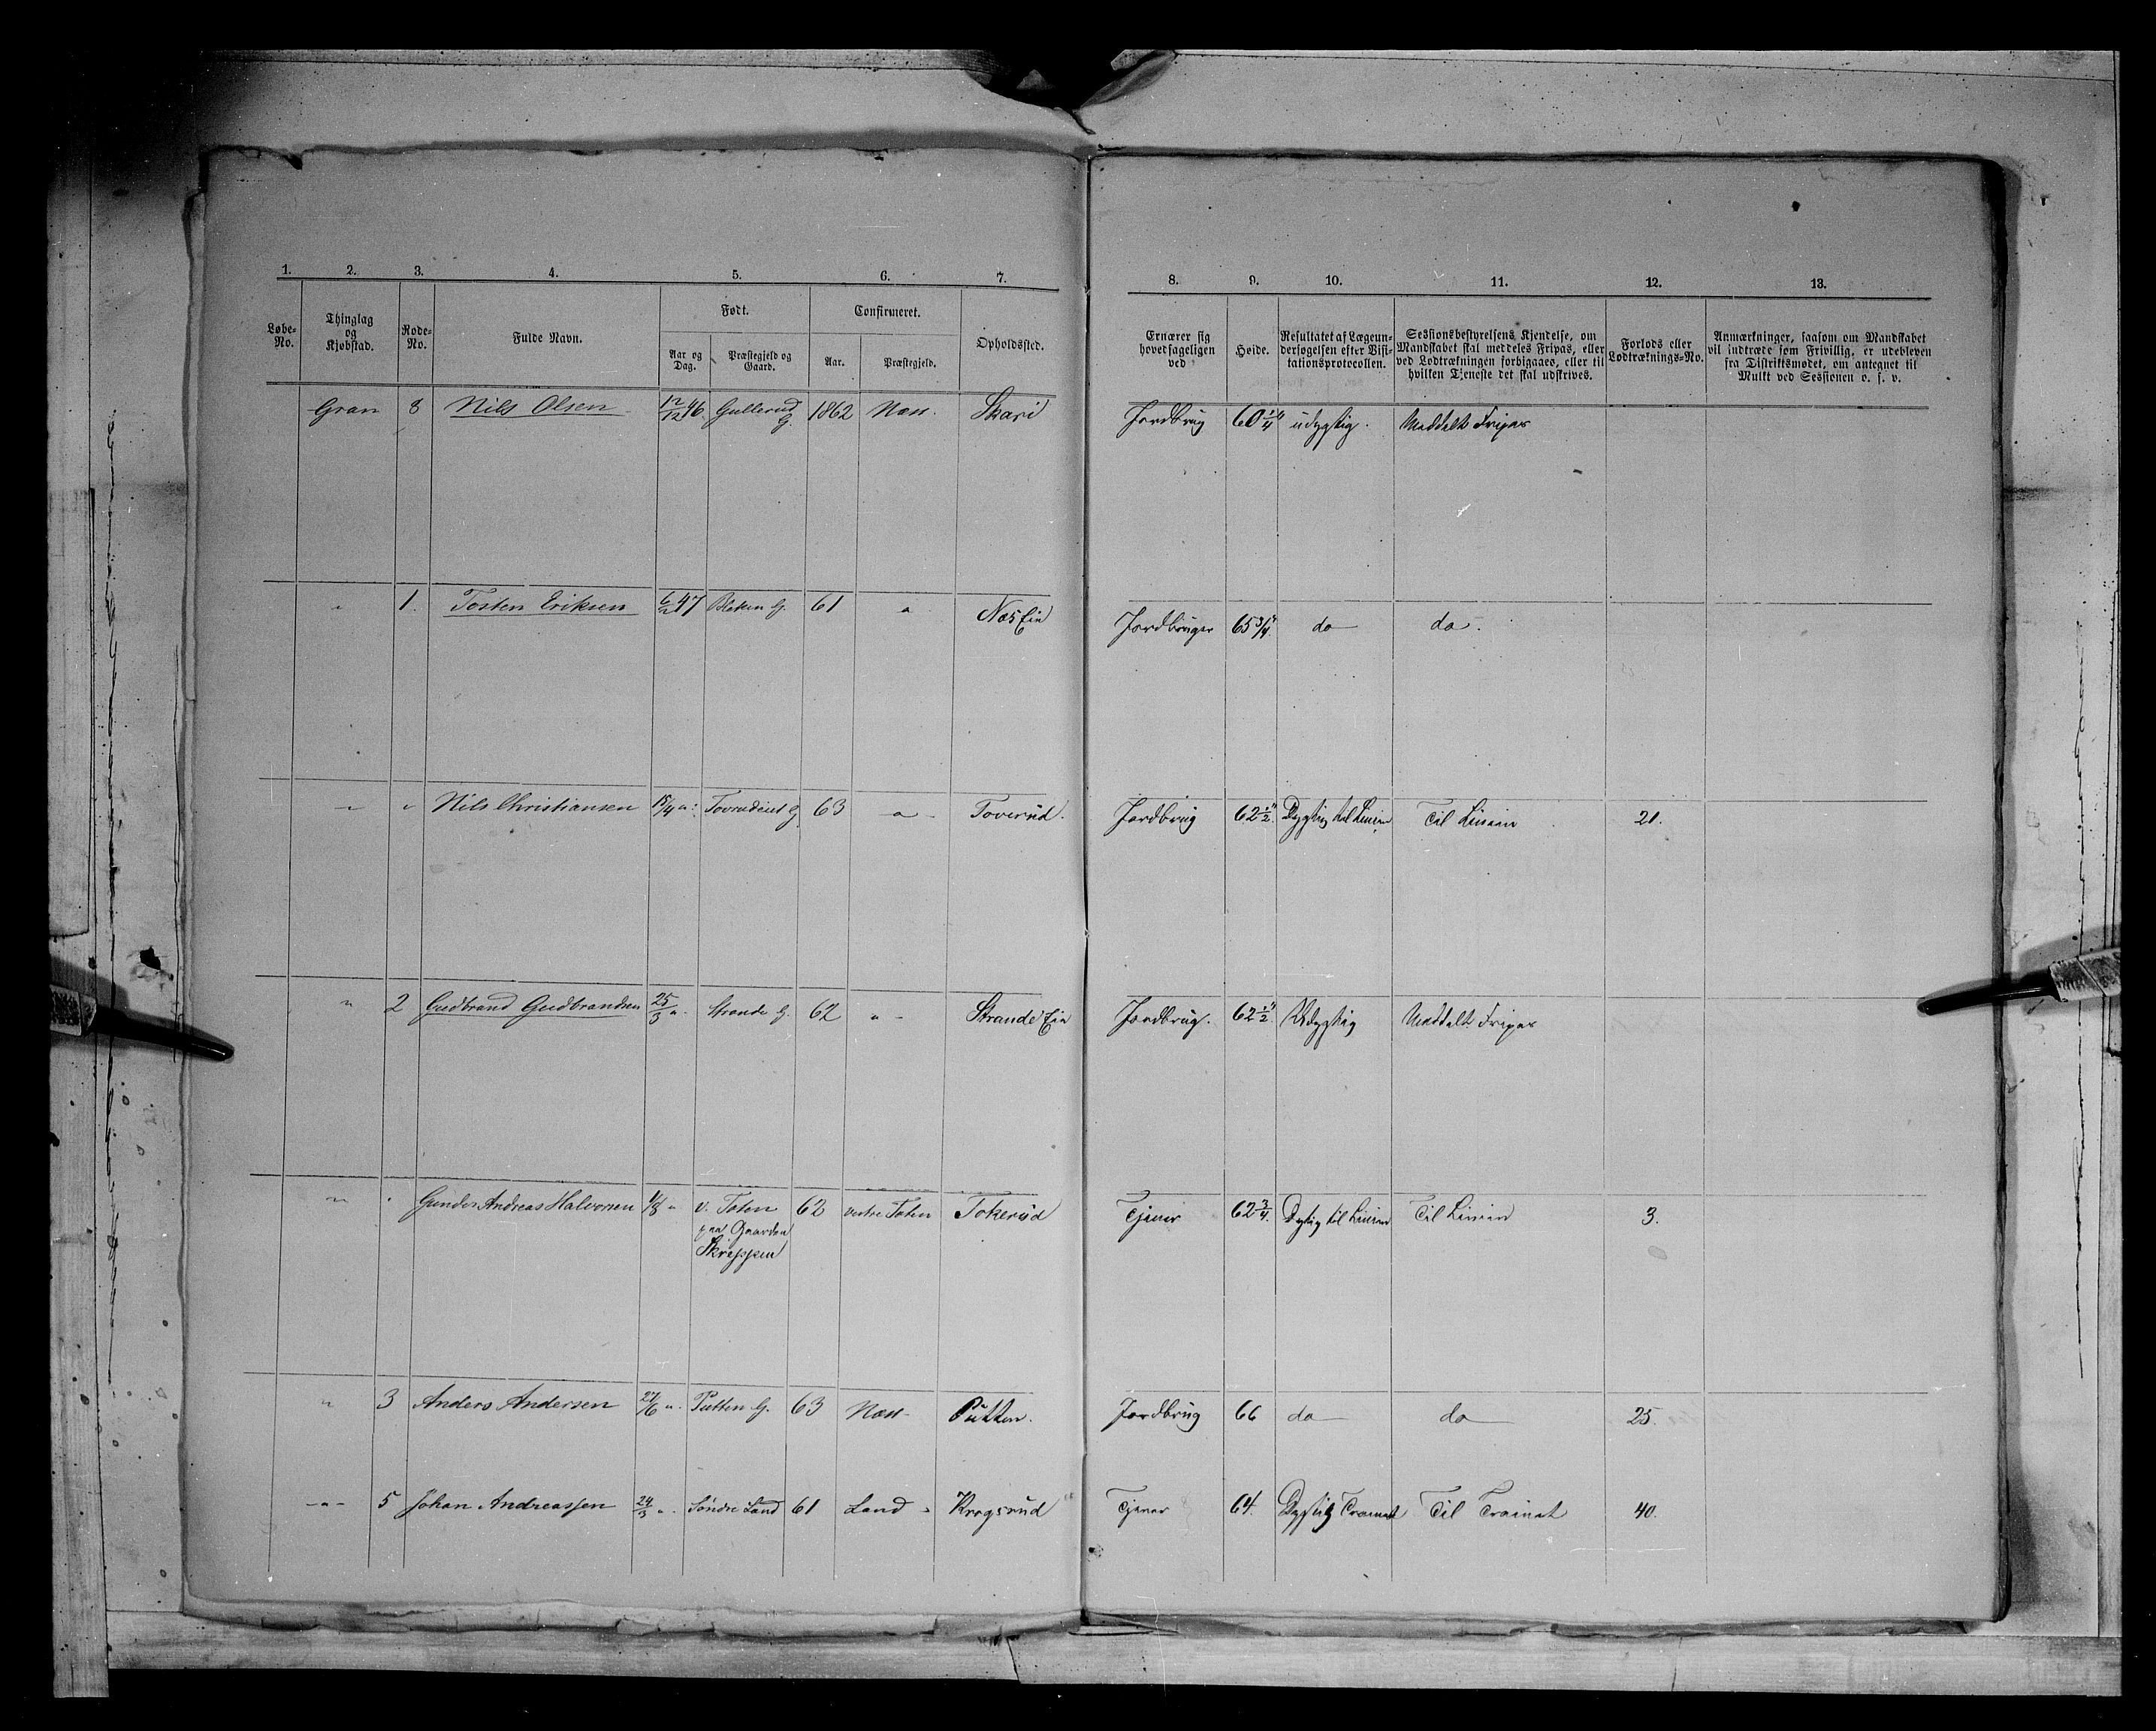 1. 2. 3. 4. 5. 6. 7.
Løbe-No. Thinglag og Kjøbstad. Rode-No. Fulde Navn. Født. Confirmeret. Opholdssted.
Aar og Dag. Præstegjeld og Gaard. Aar. Præstegjeld.
8. 9. 10. 11. 12. 13.
Ernærer sig hovedsageligen ved
Høide.
Resultatet af Lægeun-
dersøgelsen efter Visi-
tationsprotocollen.
Sessionsbestyrelsens Kjendelse, om
Mandskabet skal meddeles Fripas, eller
ved Lodtrækningen forbigaaes, eller til
hvilken Tjeneste det skal udskrives.
Forlods eller
Lodtræknings-No.
Anmærkninger, saasom om Mandskabet
vil indtræde som Frivillig, er udebleven
fra Distriktsmødet, om antegnet til
Mulkt ved Sessionen o. s. v.
Gran 8 Nils Olsen 12/12 46 Gullerud G. 1862 Næss. Skari Jordbrug 60 1/4" udygtig. Meddelt Fripas
" 1. Tosten Eriksen 6/2 47 Bleken G. 61 " Næs Eie Jordbruger 65 3/4" do do.
" " Nils Christiansen 15/4 " Tovrudeiet G 63 " Toverud. Jordbrug 62 1/2" Dygtig til Linien Til Linien 21.
" 2 Gudbrand Gudbrandsen 25/5 " Strande G. 62 " Strande Eie Jordbrug. 62 1/2" Udygtig Meddelt Fripas
" " Gunder Andreas Halvorsen 1/8 " v. Toten 62 vestre Toten Tokerud Tjener 62 3/4. Dygtig til Linien Til Linien 3.
paa Gaarden
Skreppen
" 3 Anders Andersen 27/6 " Putten G. 63 Næss Putten. Jordbrug 66 do do 25.
" 5 Johan Andreassen 24/3 " Søndre Land 61 Land Krogsrud Tjener 64. Dygtig Trainet Til Trainet 40.